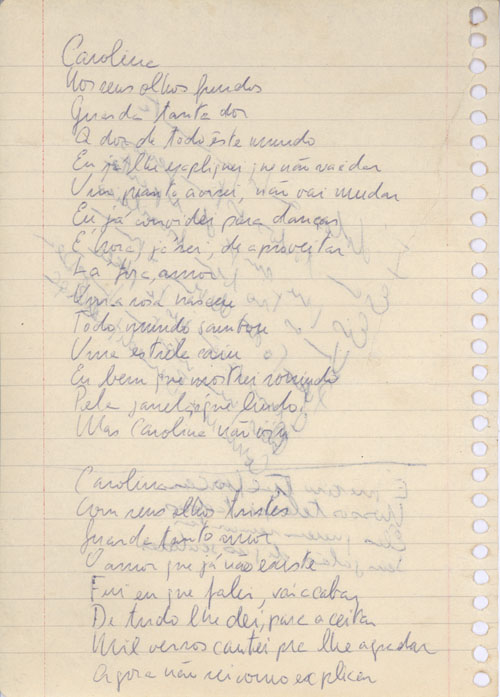 Carolina
Nos seus olhos fundos
Guarda tanta dor
A dor de todo êste mundo
Eu já lhe expliquei que não vai dar
Seu pranto não vai mudar
Eu já convidei para dançar
É hora, já sei, de aproveitar
Lá fora, amor
Uma rosa nasceu
Todo mundo sambou
Uma estrela caiu
Eu bem que mostrei sorrindo
Pela janela, que lindo
Mas Carolina não viu
Carolina
Com seus olhos tristes
Guarda tanto amor
O amor que já não existe
Eu que falei, vai acabar
De tudo lhe dei, para aceitar
Mil versos cantei pra lhe agradar
Agora não sei como explicar